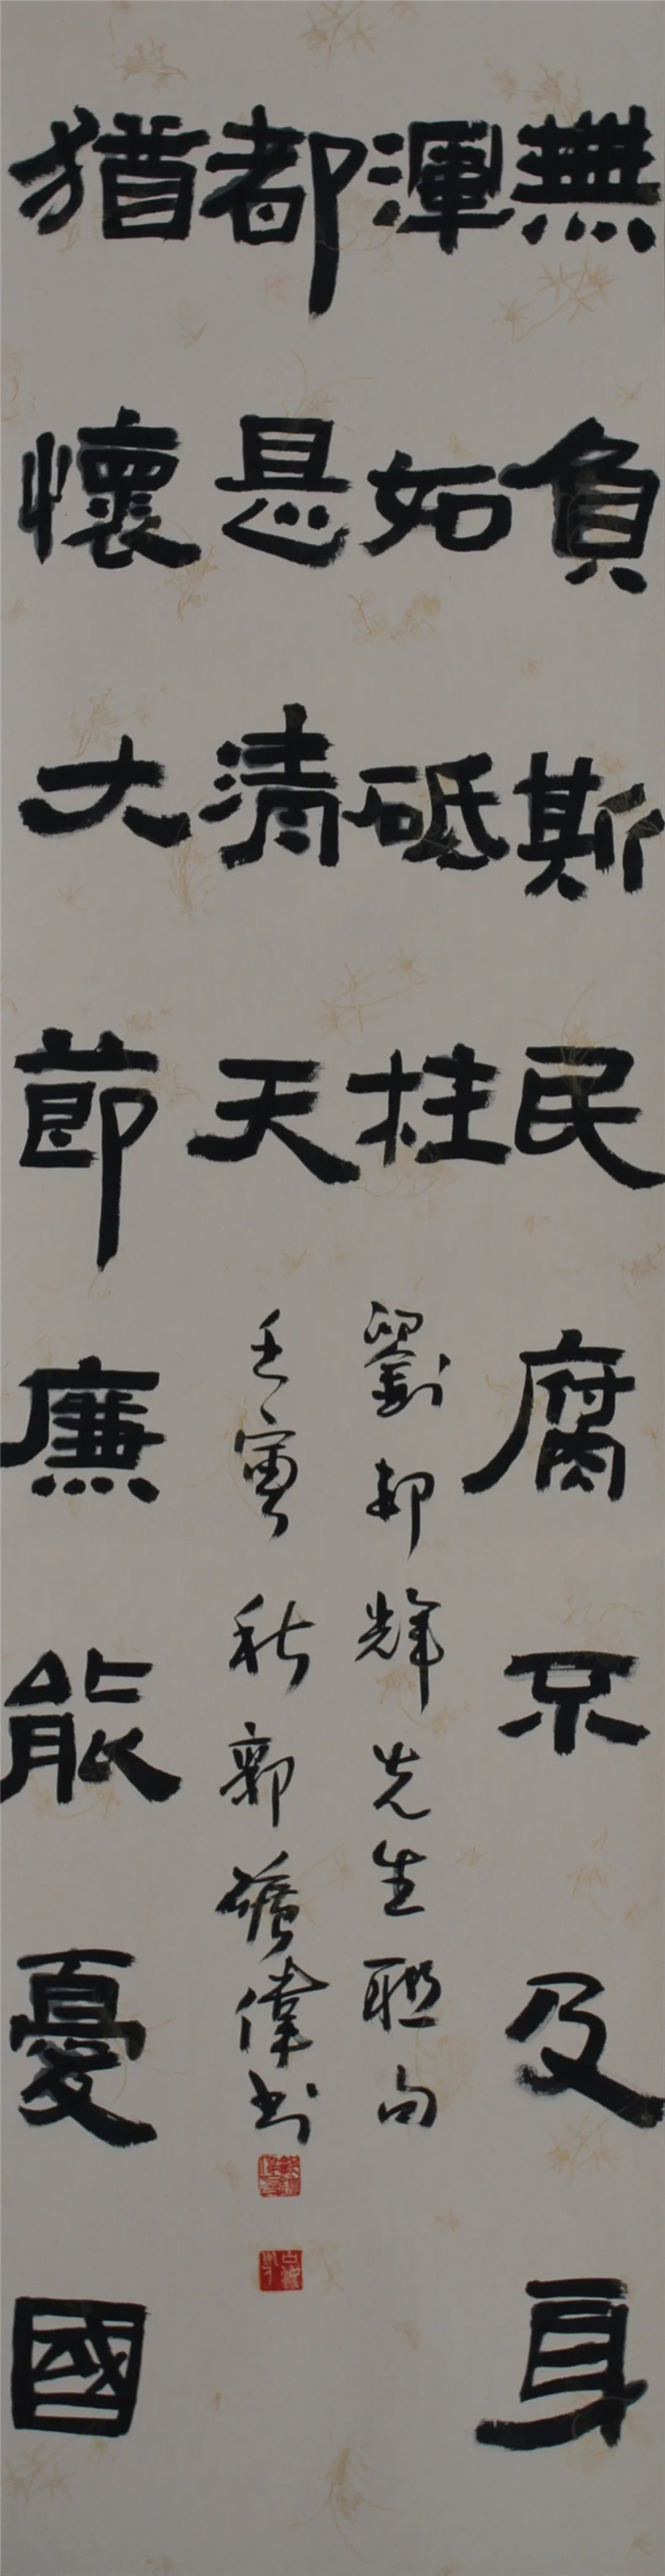 無負斯民腐不及身
渾如砥柱
猶懷大節廉能憂國
都是清天
劉邦輝先生聯句
壬寅秋郭偉書